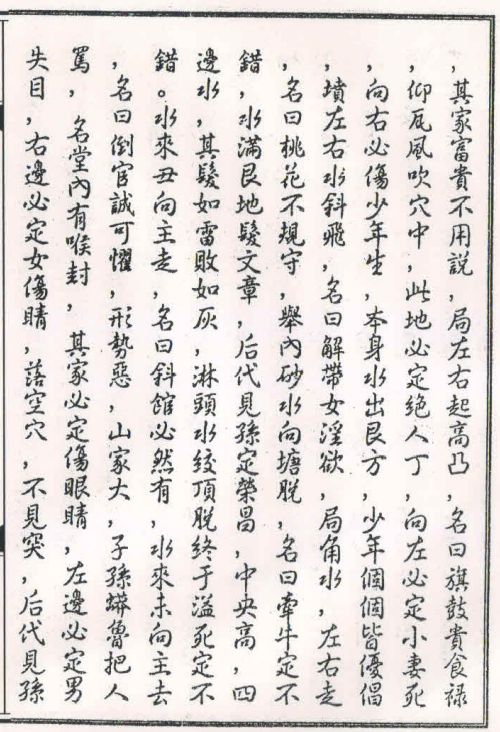 ，其家富貴不用説，局左右起高凸，名曰旗鼓貴食祿
，仰瓦風吹穴中，此地必定绝人丁，向左必定小妻死
，向右必傷少年生，本身水出艮方，少年個個皆優倡
，墳左右水斜飛，名曰解帶女淫欲，局角水，左右走
，名曰桃花不規守，舉內砂水向塘脱，名曰牽牛定不
錯，水滿艮地髮文章，后代見孫定榮昌，中央高，四
邊水，其髮如雷敗如灰，淋頭水绞頂脱终于溢死定不
錯。水來丑向主走，名曰斜館必然有，水來未向主去
，名曰倒官誠可懼，形勢惡，山家大，子孫蟒魯把人
罵，名堂內有喉封，其家必定傷眼睛，左邊必定男
失目，右邊必定女傷睛，落空穴，不見突，后代見孫